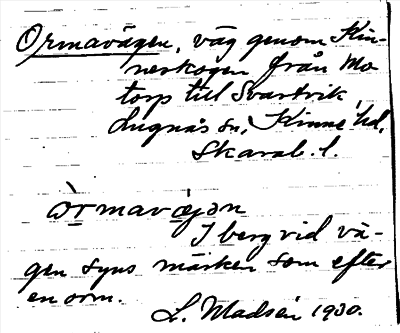 Ormavägen, väg genom Kin-
neskogen från Mo
torp till Svartvik
Lugnås sn, Kinne hd,
Skarab. l.
òrmavæ̀jən
I berg vid vä-
gen syns märken som efter
en orm.
L. Madsén 1930.